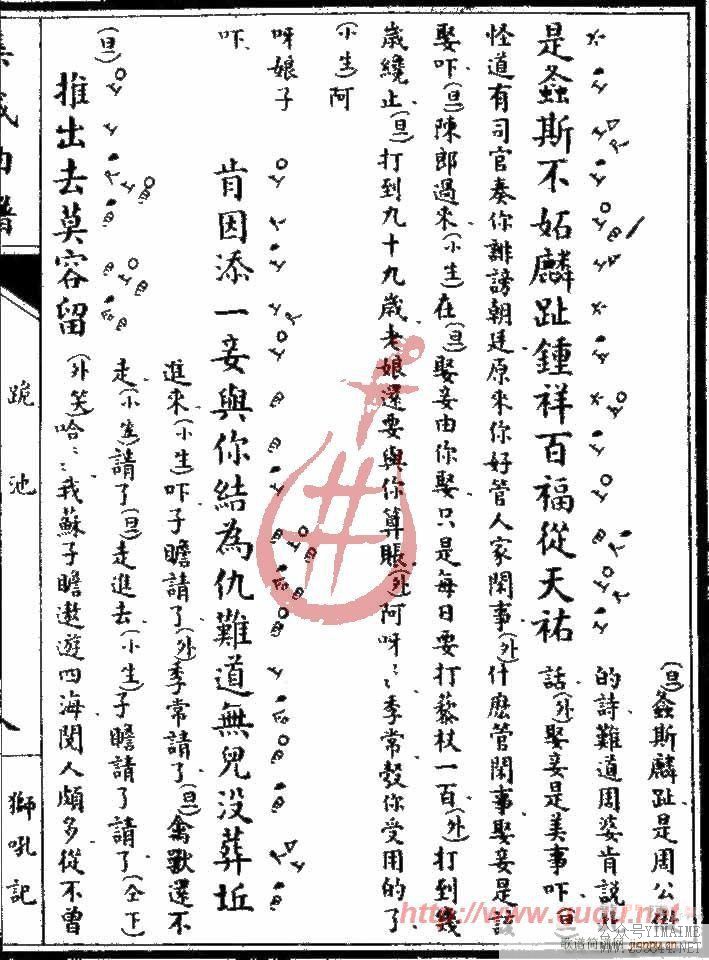 是螽斯不妬麟趾鍾祥百福從天祐
(旦)螽斯麟趾是周公做
的詩難道周婆肯說此
話(外)娶妾是美事吓(旦)
怪道有司官奏你誹謗朝廷原來你好管人家閑事(外)什麽管閑事娶妾是該
娶吓(旦)陳郎過來(小生)在(旦)娶妾由你娶只是每日要打藜杖一百(外)打到幾
歲纔止(旦)打到九十九歲老娘還要與你算賬(外)阿呀〻季常彀你受用的了
(小生)阿
呀娘子
吓
肯因添一妾與你結為仇難道無兒没葬坵
進來(小生)吓子瞻請了(外)季常請了(旦)禽獸還不
走(小生)請了(旦)走進去(小生)子瞻請了請了(仝下)
(旦)推出去莫容留
(外笑)哈〻〻我蘇子瞻遨遊四海閱人頗多從不曾
集成曲譜
跪池
獅吼記
http://www.qupu.net
公众号YIMAIME
歌谱简谱网